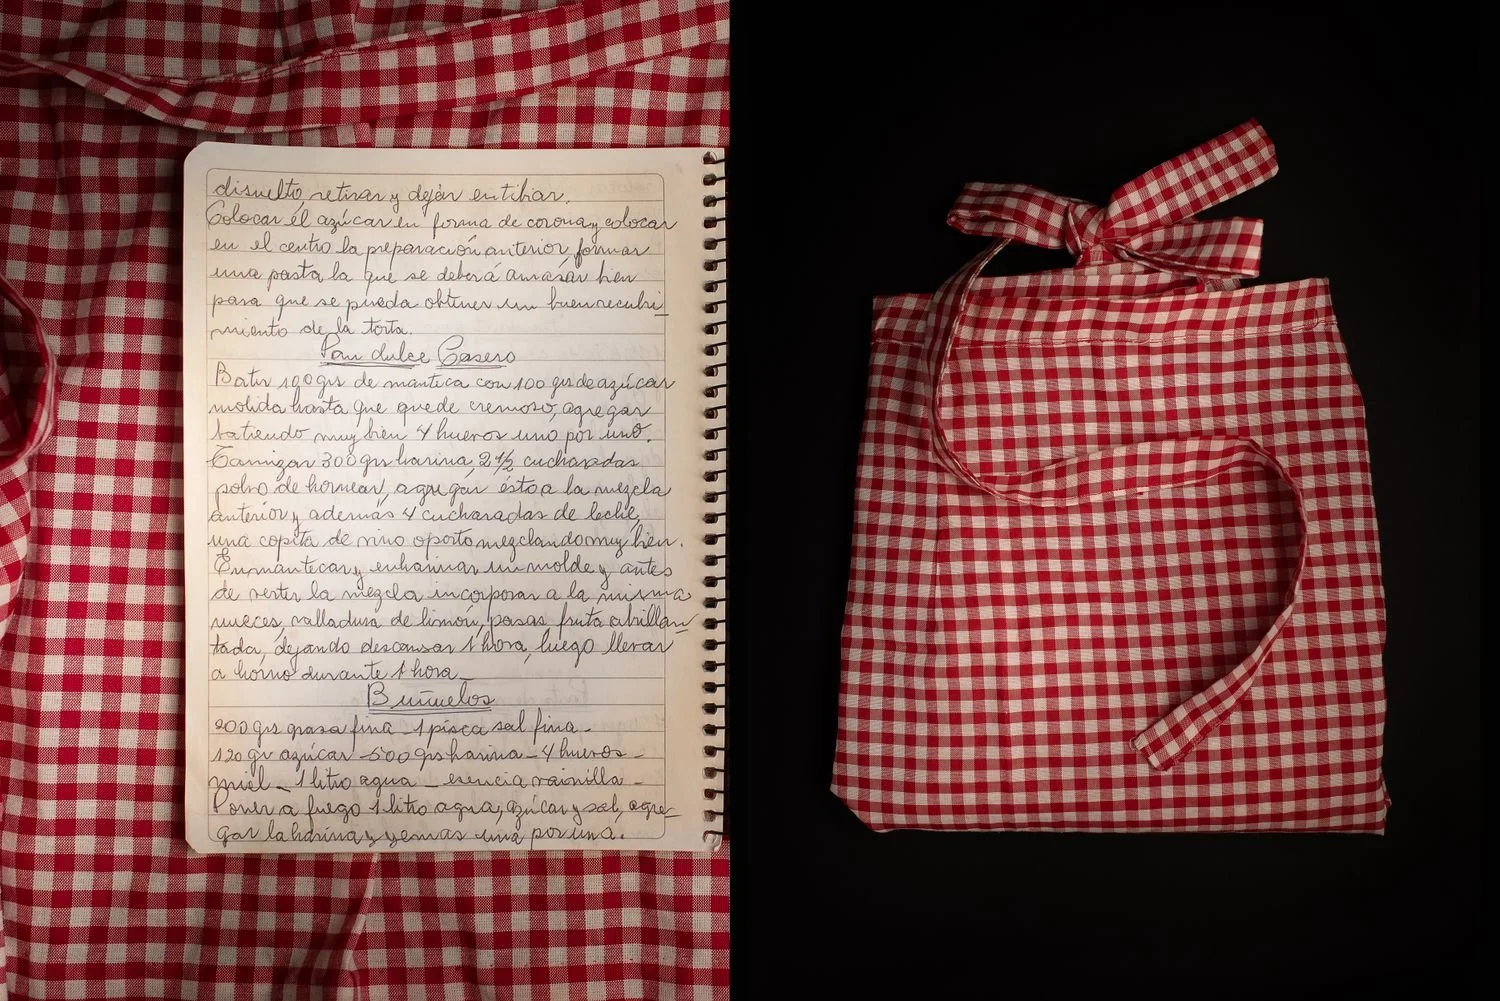 disuelto, retirar y dejar entibiar.
Colocar él azúcar en forma de corona y colocar
en el centro la preparación anterior, formar
una pasta la que se deberá amasar bien
para que se pueda obtener un buen recubri_
miento de la torta.
Pan dulce Casero
Batir 100 grs de manteca con 100 grs de azúcar
molida hasta que quede cremoso, agregar
batiendo muy bien 4 huevos uno por uno.
Tamizar 300 grs harina, 2 1/2 cucharadas
polvo de hornear, agregar ésto a la mezcla
anterior y además 4 cucharadas de leche,
una copita de vino oporto mezclando muy bien.
Enmantecar y enharinar un molde y antes
de verter la mezcla incorporar a la misma
nueces, ralladura de limón, pasas fruta abrillan_
tada, dejando descansar 1 hora, luego llevar
a horno durante 1 hora_
Buñuelos
200 grs grasa fina - 1 pisca sal fina -
120 gr azúcar - 500 grs harina - 4 huevos -
miel - 1 litro agua - esencia vainilla -
Poner a fuego 1 litro agua, azúcar y sal, agre_
gar la harina y yemas una por una.